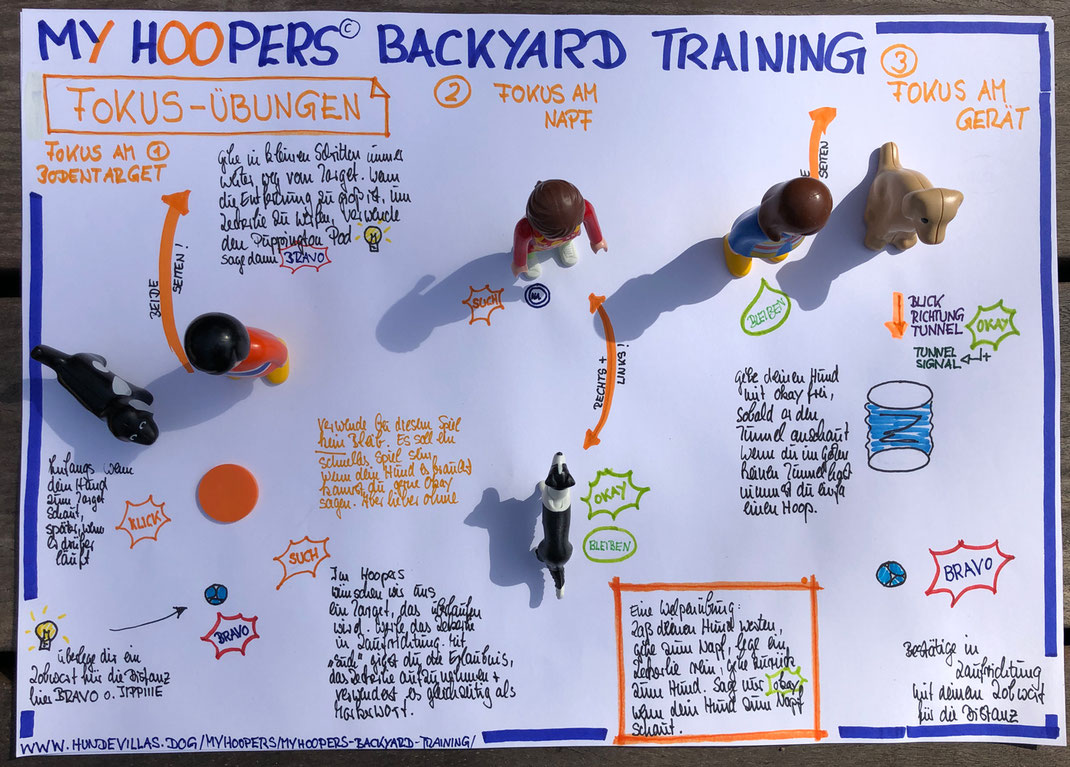 MY HOOPERS © BACKYARD TRAINING
FOKUS-ÜBUNGEN
FOKUS AM ①
BODENTARGET
gehe in kleinen Schritten immer
weiter weg vom Target. Wenn
die Entfernung zu groß ist, um
Leckerlie zu werfen, verwende
den Puppington Pod
sage dann BRAVO
BEIDE
SEITEN!
Anfangs wenn
dein Hund
zum Target
schaut,
später, wenn
er drüber
läuft
KLICK
SUCH
BRAVO
überlege dir ein
Lobwort für die Distanz
hier BRAVO o. JIPPIIIE
Verwende bei diesem Spiel
kein Bleib. Es soll ein
schnelles Spiel sein,
wenn dein Hund es braucht
kannst du gerne Okay
sagen. Aber lieber ohne
Im Hoopers
wünschen wir uns
ein Target, das überlaufen
wird. Werfe das Leckerlie
in Laufrichtung. Mit
"such" gibst du die Erlaubnis,
das Leckerlie aufzunehmen +
verwendest es gleichzeitig als
Markerwort.
② FOKUS AM
NAPF
SUCH
RECHTS +
LINKS!
OKAY
BLEIBEN
Eine Welpenübung:
Laß deinen Hund warten,
gehe zum Napf, lege ein
Leckerlie rein, gehe zurück
zum Hund. Sage nur okay,
wenn dein Hund zum Napf
schaut.
③
FOKUS AM
GERÄT
SEITEN
BLEIBEN
BLICK
RICHTUNG
TUNNEL
OKAY
TUNNEL
SIGNAL
gebe deinen Hund
mit okay frei,
sobald er den
Tunnel anschaut
Wenn du im Garten
keinen Tunnel hast
nimmst du einfa
einen Hoop.
BRAVO
Bestätige in
Laufrichtung
mit deinem Lobwort
für die Distanz
WWW.HUNDEVILLAS.DOG/MYHOOPERS/MYHOOPERS-BACKYARD-TRAINING/